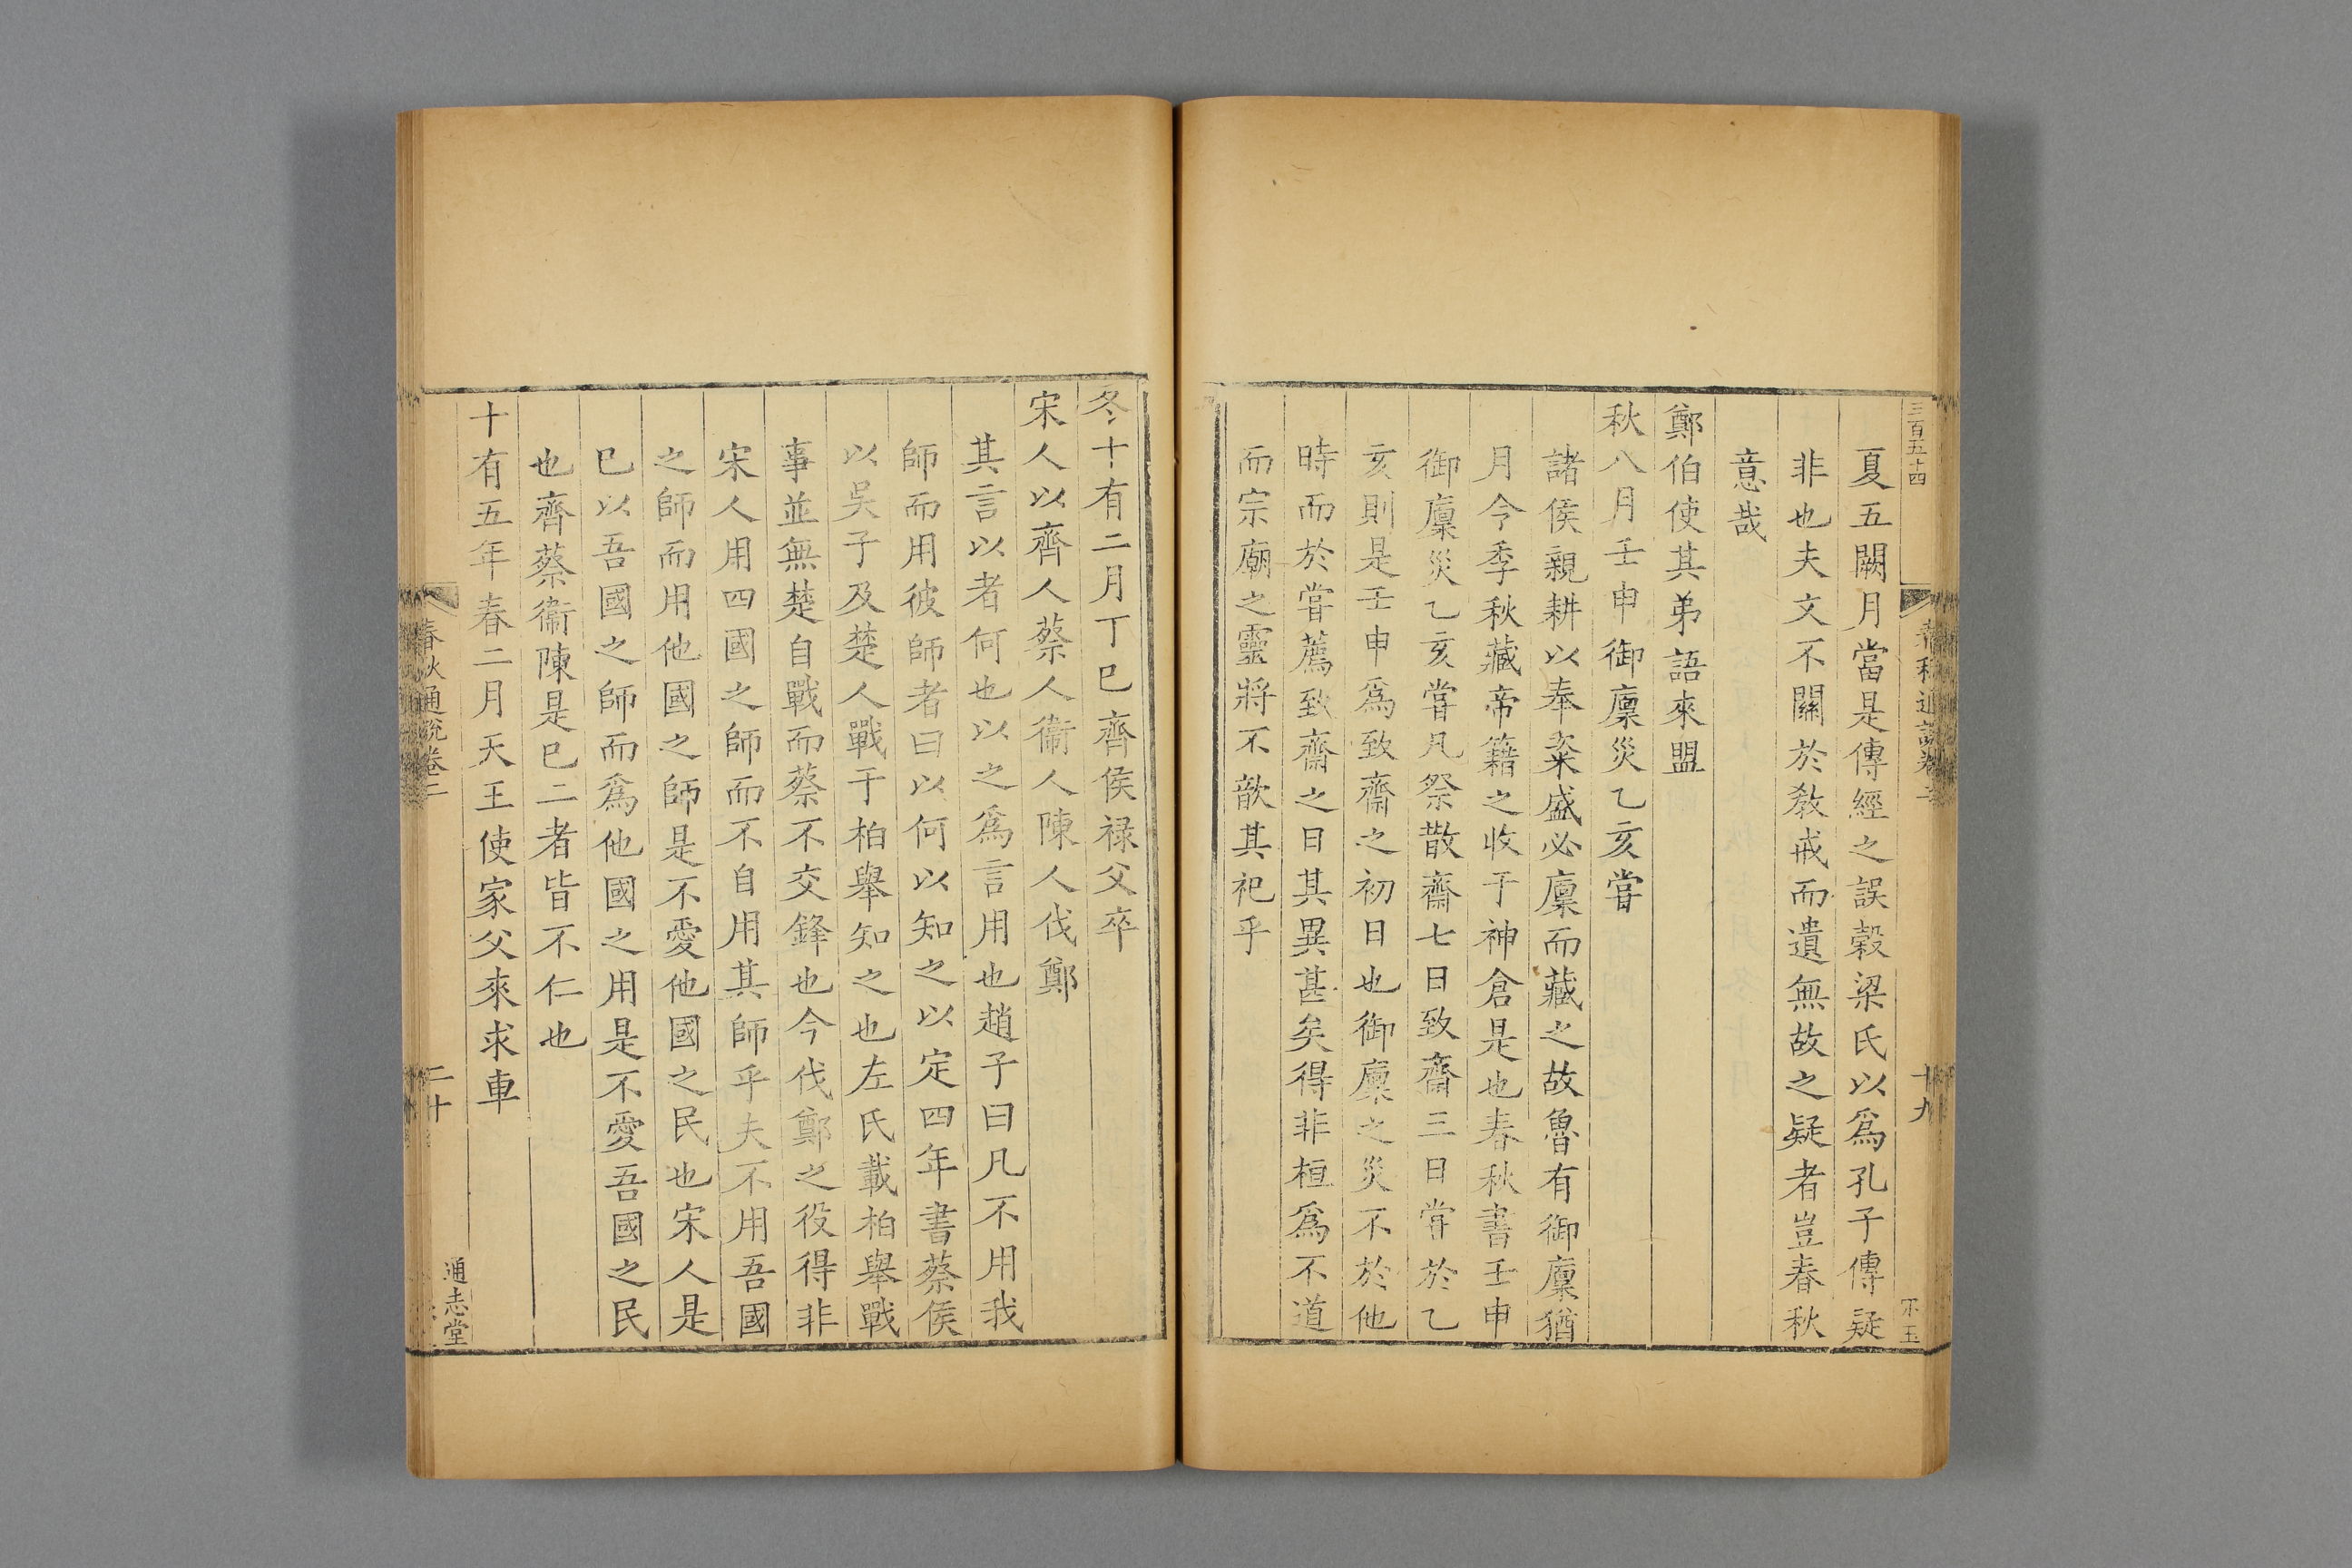 三百五十四
春秋通說卷二
十九
夏五闕月當是傳經之誤榖梁氏以爲孔子傳疑
非也夫文不關於教戒而遺無故之疑者豈春秋
意哉
鄭伯使其弟語來盟
秋八月壬申御廩災乙亥嘗
諸侯親耕以奉粢盛必廩而藏之故魯有御廩猶
月令季秋藏帝籍之收于神倉是也春秋書壬申
御廩災乙亥嘗凡祭散齋七日致齋三日嘗於乙
亥則是壬申爲致齋之初日也御廩之災不於他
時而於嘗薦致齋之日其異甚矣得非桓爲不道
而宗廟之靈將不歆其祀乎
冬十有二月丁巳齊侯祿父卒
宋人以齊人蔡人衞人陳人伐鄭
其言以者何也以之爲言用也趙子曰凡不用我
師而用彼師者曰以何以知之以定四年書蔡侯
以吳子及楚人戰于柏舉知之也左氏載柏舉戰
事並無楚自戰而蔡不交鋒也今伐鄭之役得非
宋人用四國之師而不自用其師乎夫不用吾國
之師而用他國之師是不愛他國之民也宋人是
巳以吾國之師而爲他國之用是不愛吾國之民
也齊蔡衞陳是巳二者皆不仁也
十有五年春二月天王使家父來求車
春秋通說卷二
二十
通志堂